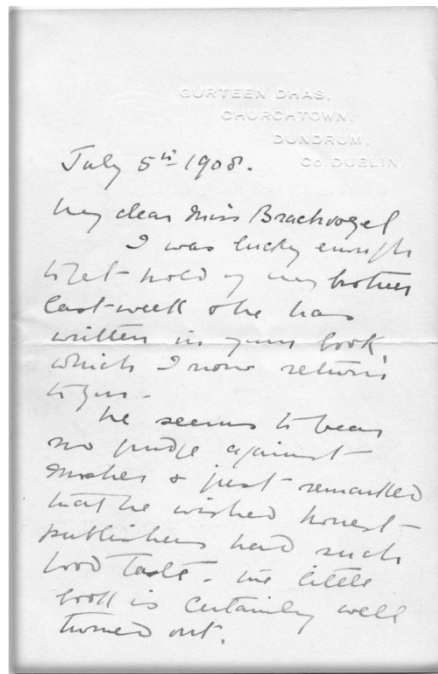 GURTEEN DHAS,
CHURCHTOWN,
DUNDRUM,
Co. DUBLIN.
July 5th 1908.
My dear Miss Brachvogel
I was lucky enough
to get hold of my brother
last week & he has
written in your book
which I now return
to you.
He seems to bear
no grudge against
Mosher & just remarked
that he wished honest
publishers had such
good taste. The little
book is certainly well
turned out.